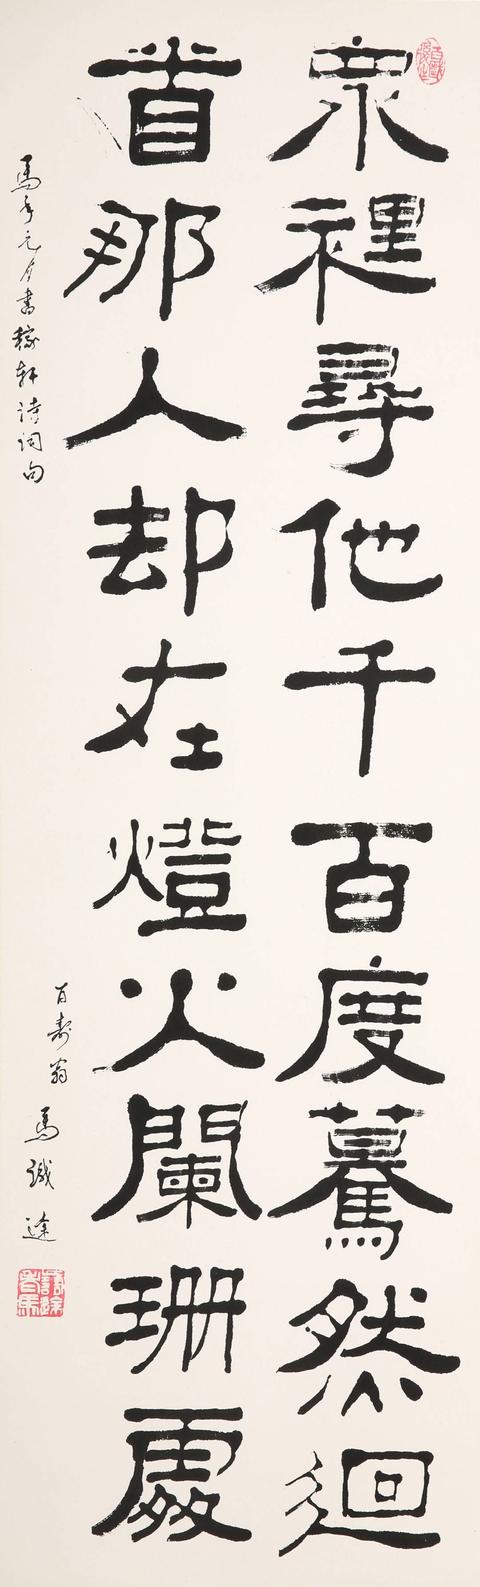 眾裡尋他千百度驀然迴
首那人却在燈火闌珊處
馬年元月書稼軒詩詞句
百壽翁 馬識途